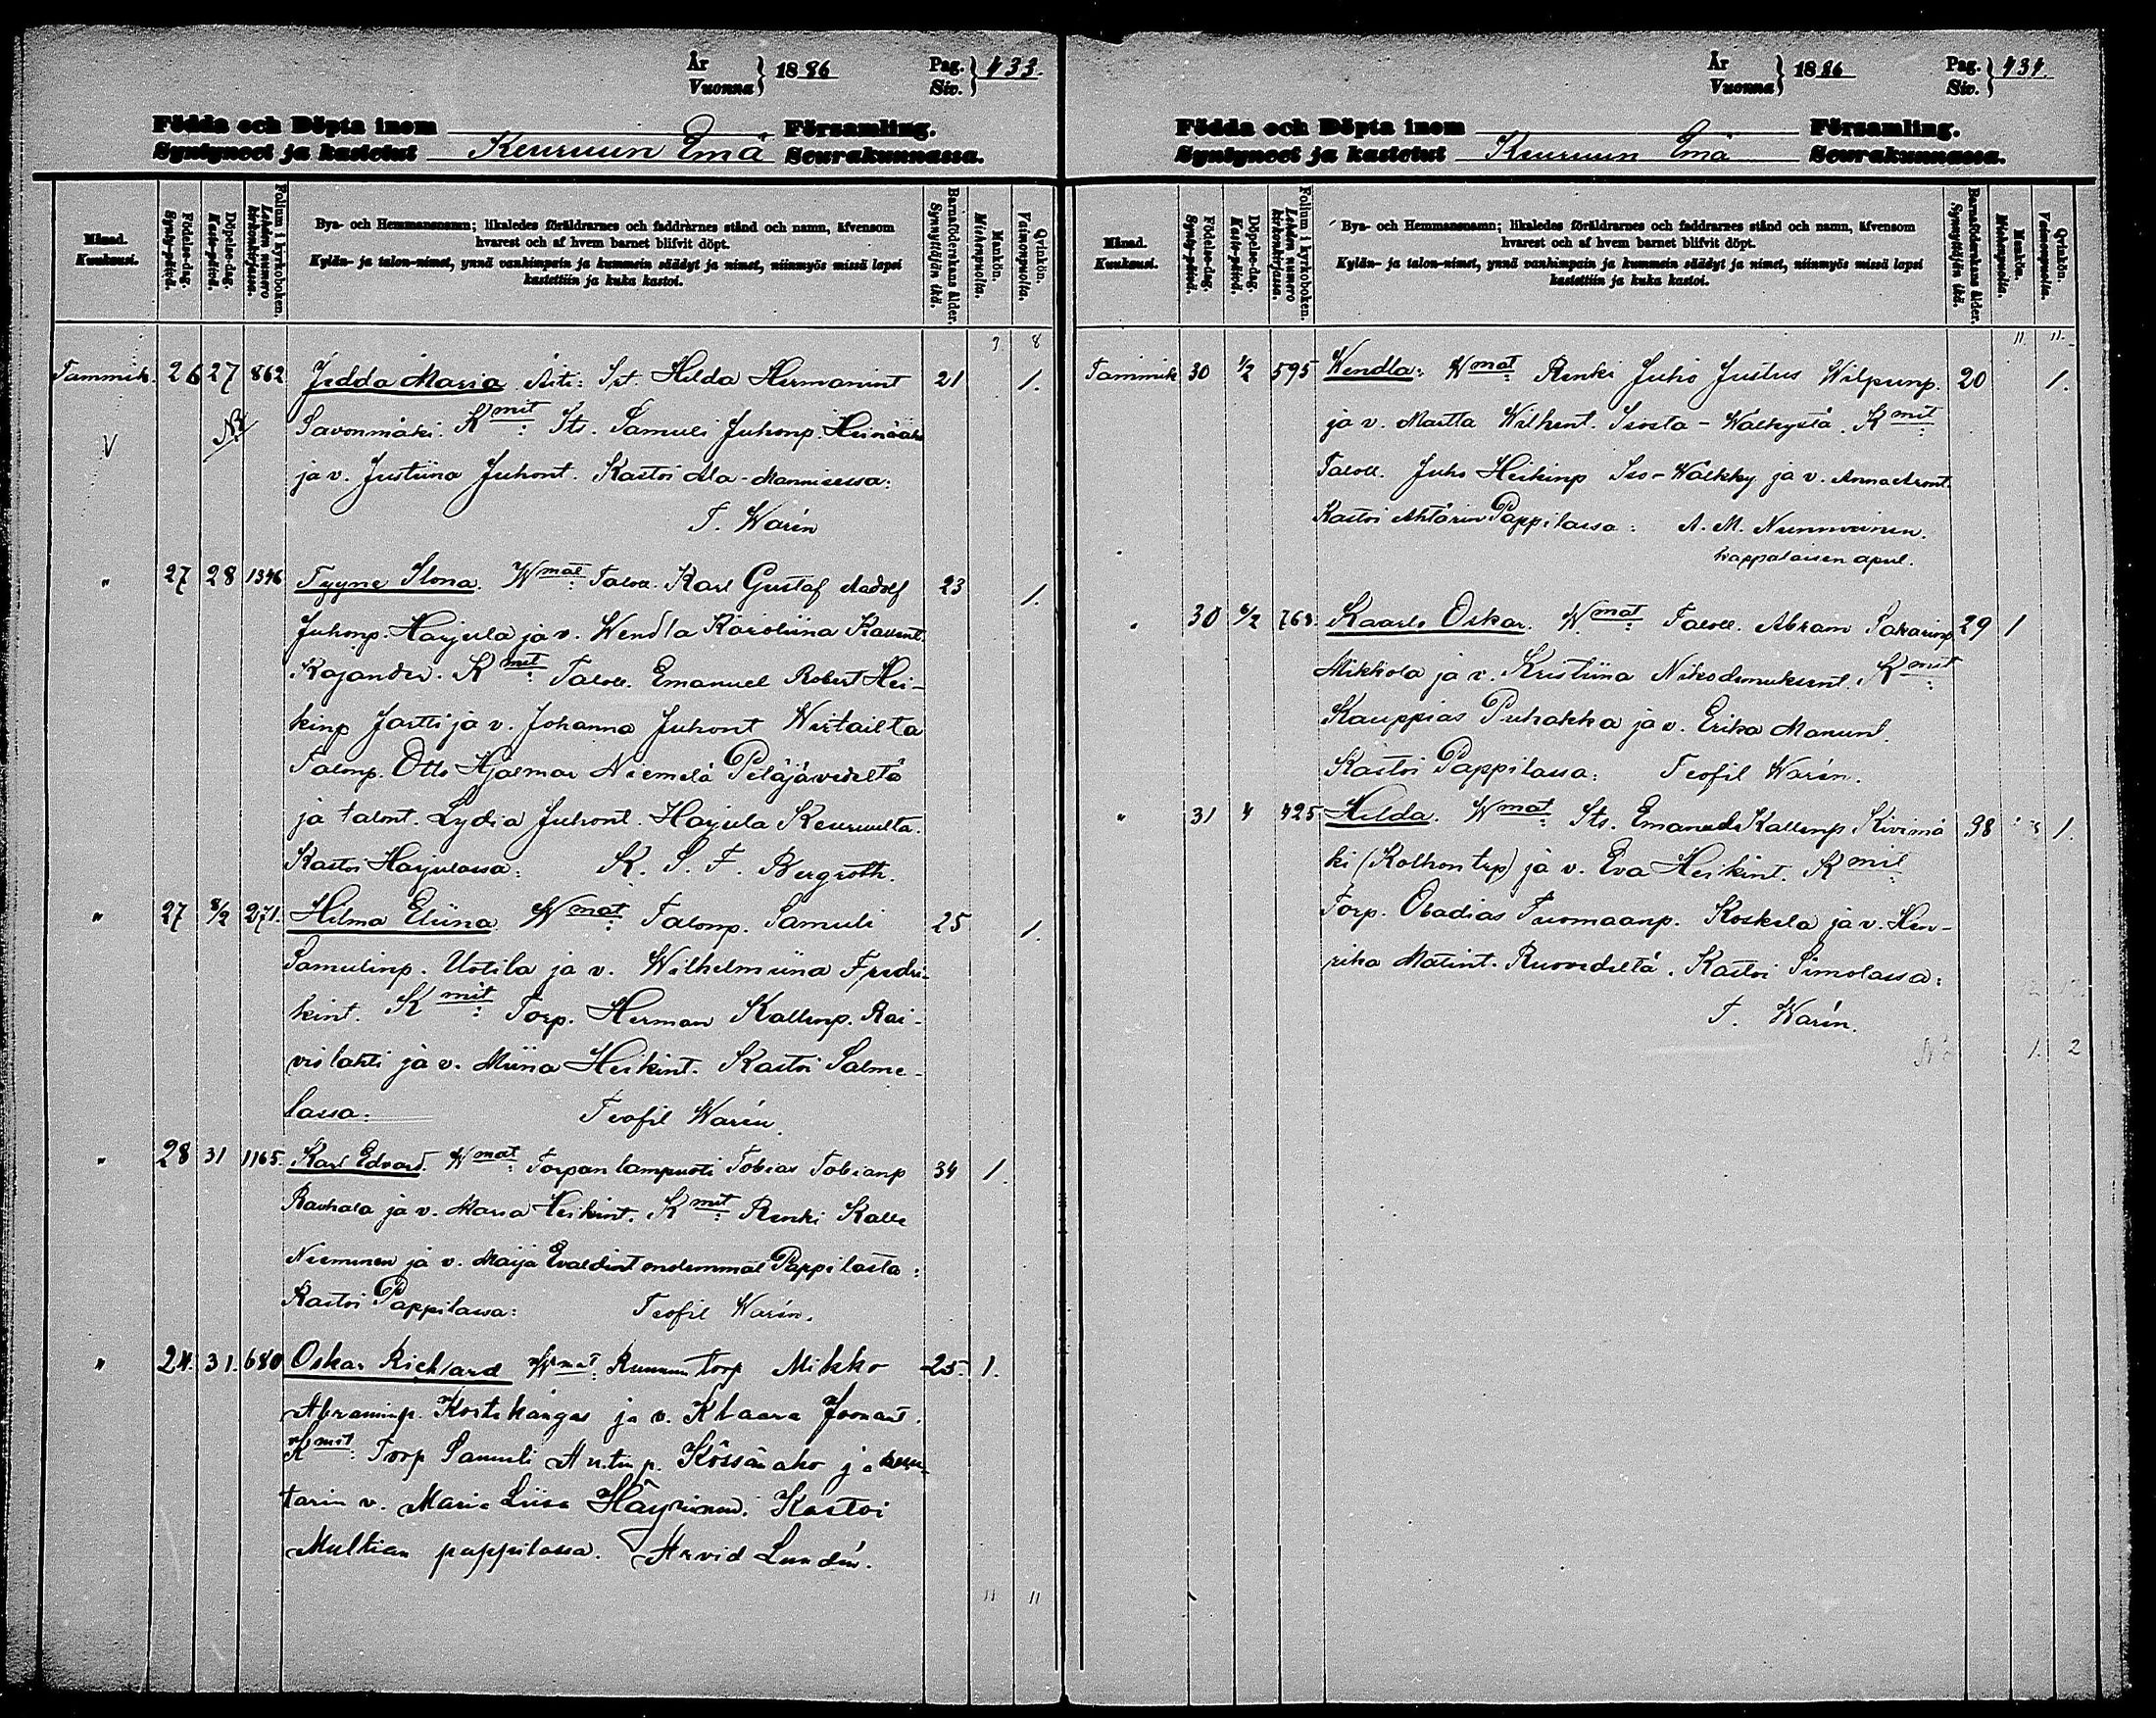 År
Vuonna } 1886 Pag.
Siv. } 433.
Födda och Döpta inom Församling.
Syntyneet ja kastetut Keuruun Emä Seurakunnassa.
Månad.
Kuukausi.
Födelse-dag.
Synty-päivä.
Döpelse-dag.
Kaste-päivä.
Folium i kyrkoboken.
Lehden numero kirkonkirjassa.
Bya- och Hemmansnamn; likaledes föräldrarnes och faddrarnes stånd och namn, äfvensom
hvarest och af hvem barnet blifvit döpt.
Kylän- ja talon-nimet, ynnä vanhimpain ja kummein säädyt ja nimet, niinmyös missä lapsi
kastettiin ja kuka kastoi.
Barnaföderskans ålder.
Synnyttäjän ikä.
Mankön.
Miehenpuolta.
Qvinkön.
Vaimonpuolta.
9 8
Tammik. 26 27 862 Jedda Maria Äiti: Hilda Hermanint 21 1.
Savonmäki. Kmit: Its. Samuli Juhonp. Heinäaho
ja v. Justiina Juhont. Kastoi Ala-Mannisessa:
T. Warén
" 27 28 1346 Tyyne Ilona. Wmat: Taloll. Karl Gustaf Aadolf 23 1.
Juhonp. Harjula ja v. Wendla Karoliina Kallent.
Kajander. Kmit: Taloll. Emanuel Robert Hei-
kinp Jartti ja v. Johanna Juhont
Talonp. Otto Hjalmar Niemelä Petäjävedeltä
ja talont. Lydia Juhont. Harjula Keuruulta.
Kastoi Harjulassa: K. S. F. Bergroth.
" 27 8/2 271. Hilma Eliina Wmat: Talonp. Samuli 25 1.
Samulinp. Uotila ja v. Wilhelmiina Fredri-
kint. Kmit: Torp. Herman Kallenp. Rai-
vislahti ja v. Miina Heikint. Kastoi Salme-
lassa: Teofil Warén.
" 28 31 1165. Karl Edvard. Wmat: Torpan lampuoti Tobias Tobianp 34 1.
Rauhala ja v. Maria Heikint. Kmit: Renki Kalle
Nieminen ja v. Maija Evaldint molemmat Pappilasta:
Kastoi Pappilassa: Teofil Warén.
" 24. 31. 680 Oskar Richard Wmat: Ruunun torp Mikko 25. 1.
Abraminp. Kortekangas ja v. Klaara Joonant.
Kmit: Torp Samuli Antinp. Kössinaho ja
v. Maria Liisa Häyrinen. Kastoi
Multian pappilassa. Arvid Lundén.
11 11
År
Vuonna } 1886 Pag.
Siv. } 434.
Födda och Döpta inom Församling.
Syntyneet ja kastetut Keuruun Emä Seurakunnassa.
Månad.
Kuukausi.
Födelse-dag.
Synty-päivä.
Döpelse-dag.
Kaste-päivä.
Folium i kyrkoboken.
Lehden numero kirkonkirjassa.
Bya- och Hemmansnamn; likaledes föräldrarnes och faddrarnes stånd och namn, äfvensom
hvarest och af hvem barnet blifvit döpt.
Kylän- ja talon-nimet, ynnä vanhimpain ja kummein säädyt ja nimet, niinmyös missä lapsi
kastettiin ja kuka kastoi.
Barnaföderskans ålder.
Synnyttäjän ikä.
Mankön.
Miehenpuolta.
Qvinkön.
Vaimonpuolta.
11 11.
Tammik 30 1/2 595 Wendla: Wmat: Renki Juho Justus Wilpunp. 20 1.
ja v. Martta Wilhent. Isosta-Wälkystä. Kmit
Taloll. Juho Heikinp Iso-Wälkky ja v. Anna Aront.
Kastoi Ähtärin Pappilassa: A. M. Nummeinen.
kappalaisen apul.
" 30 6/2 763. Kaarlo Oskar. Wmat: Taloll. Abram Sakarinp 29 1
Mikkola ja v. Kristiina Nikodemuksent. Kmit:
Kauppias Puhakka ja v. Erika Manunt.
Kastoi Pappilassa: Teofil Warén.
" 31 4 425 Hilda. Wmat: Its. Emanuel Kallenp Kivimä 38 1.
ki (Kolhon trp) ja v. Eva Heikint. Kmit:
Torp. Obadias Tuomaanp. Koskela ja v. Hen-
rika Matint. Ruovedeltä. Kastoi Simolassa:
T. Warén.
1. 2